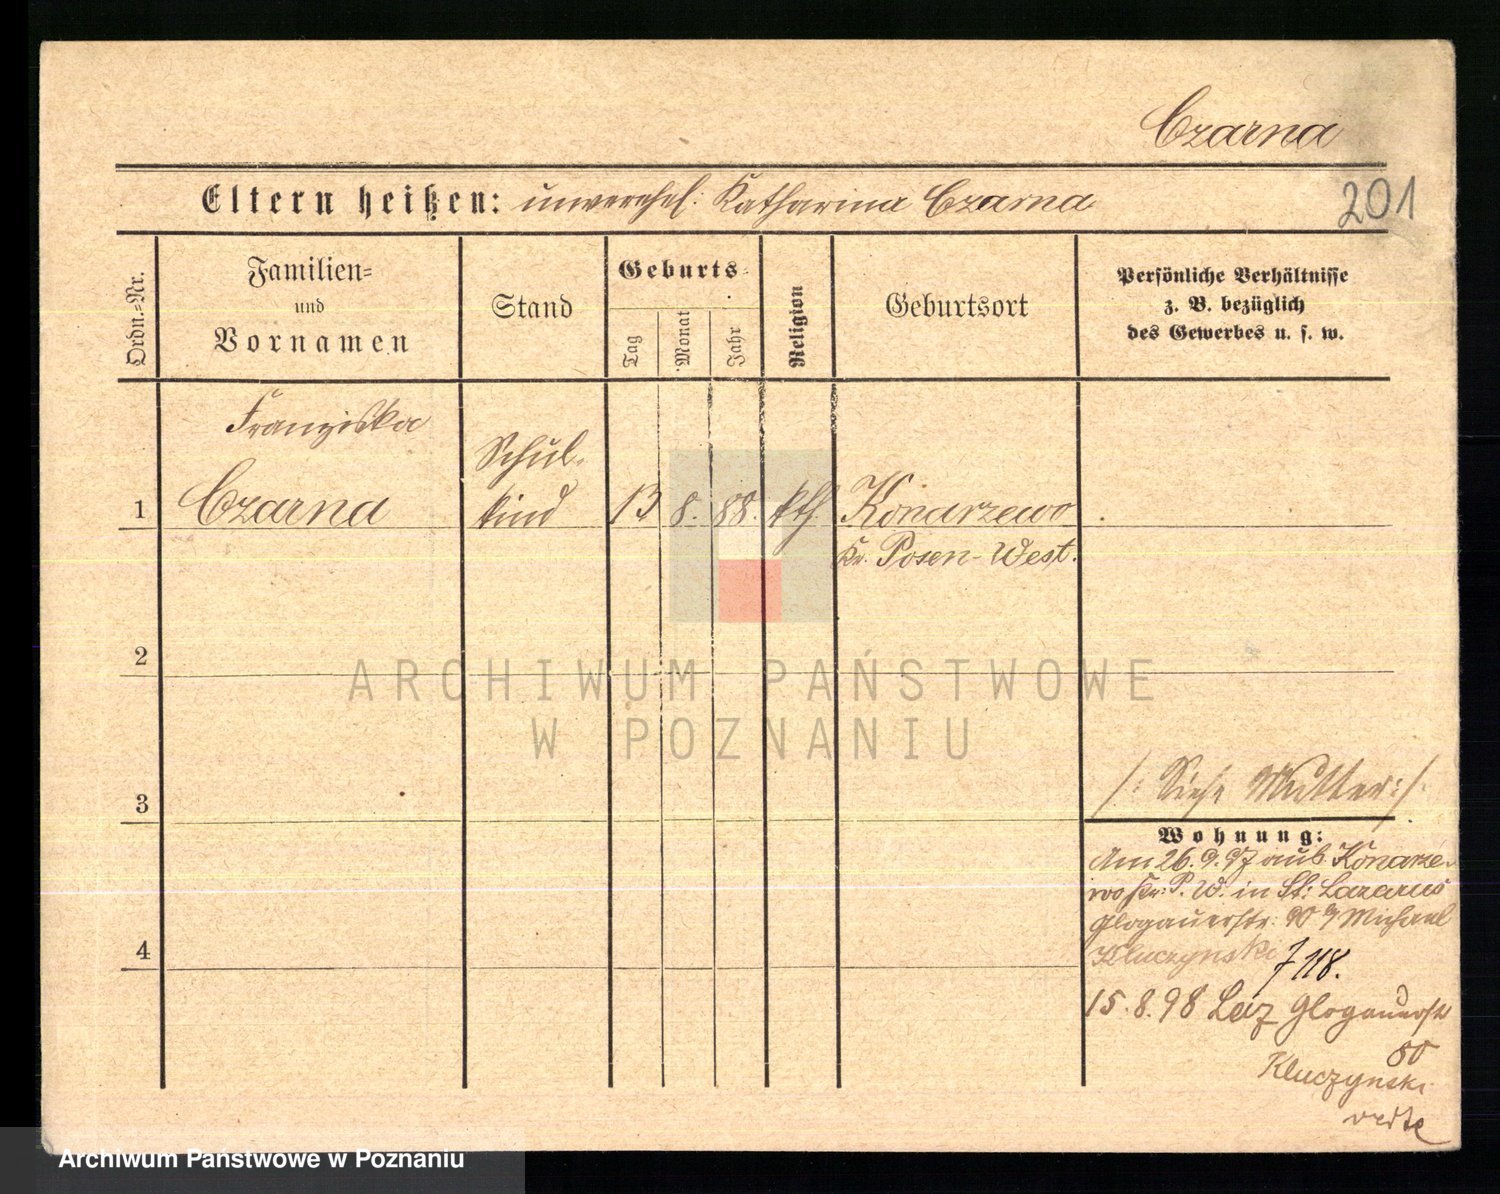 Czarna
Eltern heißen: unverehel. Katharina Czarna
201
Ordn.-Nr.
Familien-
und
Vornamen
Stand
Geburts-
Tag
Monat
Jahr
Religion
Geburtsort
Persönliche Verhältnisse
z. B. bezüglich
des Gewerbes u. s. w.
Franziska
1 Czarna
Schul-
kind
13 8. 88. kth.
Konarzewo
Kr. Posen-West.
2
ARCHIWUM PAŃSTWOWE
W POZNANIU
3
/: Siehe Mutter :/
Wohnung:
Am 26.9.97 aus Konarze-
wo Kr. P. W. in St: Lazarus
Glogauerstr. 90 Michael
Kluczynski 118.
4
15.8.98 Laz Glogauerstr
80
Kluczynski
Archiwum Państwowe w Poznaniu